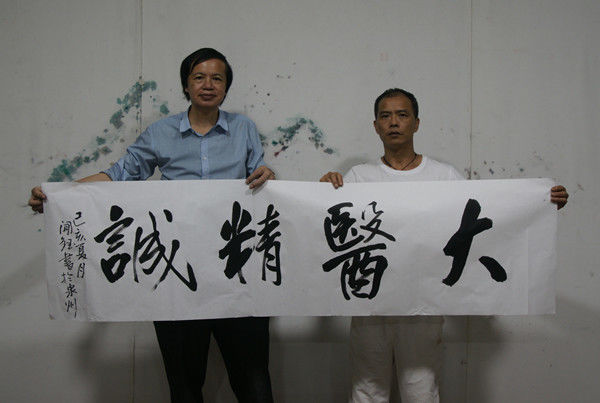 大醫精誠
己亥夏月
闻钰書於泉州